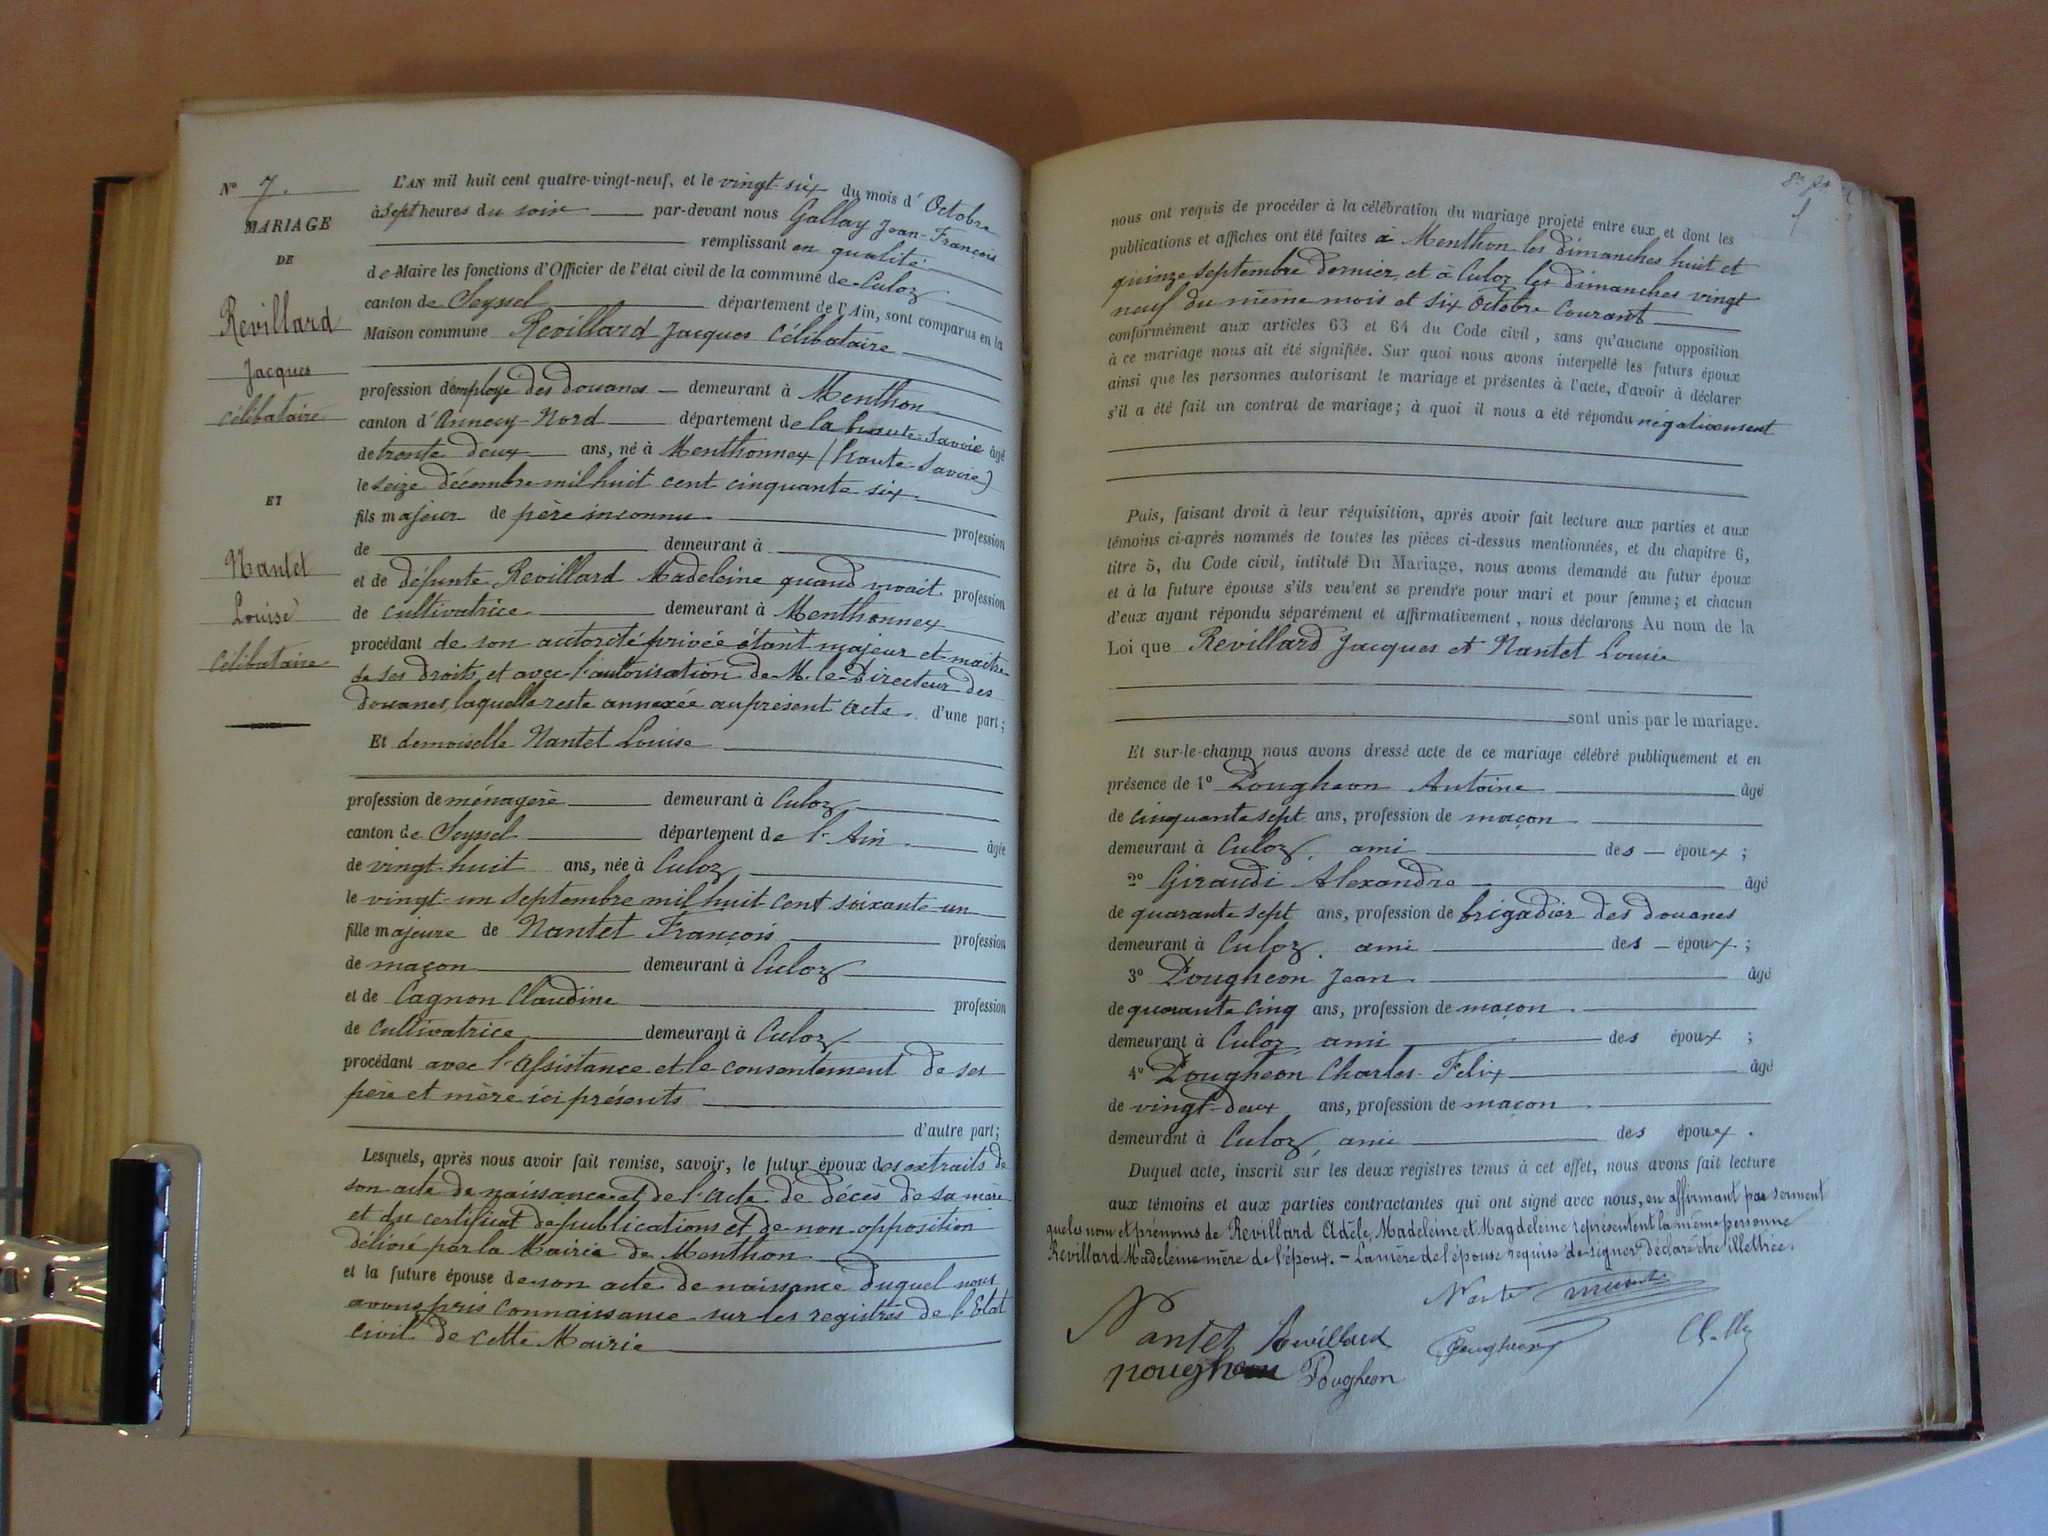 N° 7.
MARIAGE
DE
Revillard
Jacques
célibataire
ET
Nantet
Louise
célibataire
L'AN mil huit cent quatre-vingt-neuf, et le vingt-six du mois d'Octobre
à sept heures du soir par-devant nous Gallay Jean-François
remplissant en qualité
de Maire les fonctions d'Officier de l'état civil de la commune de Culoz
canton de Seyssel département de l'Ain, sont comparus en la
Maison commune Revillard Jacques célibataire
profession d'employé des douanes demeurant à Menthon
canton d'Annecy-Nord département de la haute-Savoie âgé
de trente deux ans, né à Menthonnex (haute-Savoie)
le seize décembre mil huit cent cinquante six
fils majeur de père inconnu profession
de demeurant à
et de défunte Revillard Madeleine quand vivait profession
de cultivatrice demeurant à Menthonnex
procédant de son autorité privée étant majeur et maitre
de ses droits, et avec l'autorisation de M. le directeur des
douanes, laquelle reste annexée au présent acte. d'une part;
Et demoiselle Nantet Louise
profession de ménagère demeurant à Culoz
canton de Seyssel département de l'Ain âgée
de vingt-huit ans, née à Culoz
le vingt-un septembre mil huit cent soixante-un
fille majeure de Nantet François profession
de maçon demeurant à Culoz
et de Cagnon Claudine profession
de cultivatrice demeurant à Culoz
procédant avec l'assistance et le consentement de ses
père et mère ici présents
d'autre part;
Lesquels, après nous avoir fait remise, savoir, le futur époux des extraits de
son acte de naissance et de l'acte de décès de sa mère
et du certificat de publications et de non opposition
délivré par la Mairie de Menthon
et la future épouse de son acte de naissance duquel nous
avons pris connaissance sur les registres de l'Etat
civil de cette Mairie
nous ont requis de procéder à la célébration du mariage projeté entre eux, et dont les
publications et affiches ont été faites à Menthon les dimanches huit et
quinze septembre dernier, et à Culoz les dimanches vingt
neuf du même mois et six Octobre courant
conformément aux articles 63 et 64 du Code civil, sans qu'aucune opposition
à ce mariage nous ait été signifiée. Sur quoi nous avons interpellé les futurs époux
ainsi que les personnes autorisant le mariage et présentes à l'acte, d'avoir à déclarer
s'il a été fait un contrat de mariage; à quoi il nous a été répondu négativement
Puis, faisant droit à leur réquisition, après avoir fait lecture aux parties et aux
témoins ci-après nommés de toutes les pièces ci-dessus mentionnées, et du chapitre 6,
titre 5, du Code civil, intitulé Du Mariage, nous avons demandé au futur époux
et à la future épouse s'ils veulent se prendre pour mari et pour femme; et chacun
d'eux ayant répondu séparément et affirmativement, nous déclarons Au nom de la
Loi que Revillard Jacques et Nantet Louise
sont unis par le mariage.
Et sur-le-champ nous avons dressé acte de ce mariage célébré publiquement et en
présence de 1° Pougheon Antoine âgé
de cinquante sept ans, profession de maçon
demeurant à Culoz, ami des époux;
2° Giraudi Alexandre âgé
de quarante sept ans, profession de brigadier des douanes
demeurant à Culoz, ami des époux;
3° Pougheon Jean âgé
de quarante cinq ans, profession de maçon
demeurant à Culoz, ami des époux;
4° Pougheon Charles-Felix âgé
de vingt-deux ans, profession de maçon
demeurant à Culoz, ami des époux.
Duquel acte, inscrit sur les deux registres tenus à cet effet, nous avons fait lecture
aux témoins et aux parties contractantes qui ont signé avec nous, en affirmant par serment
que les nom et prénoms de Revillard Adèle, Madeleine et Magdeleine représentent la même personne
Revillard Madeleine mère de l'époux. - La mère de l'épouse requise de signer a déclaré être illettrée.
Nantet
Nantet Revillard Pougheon
pougheon Pougheon